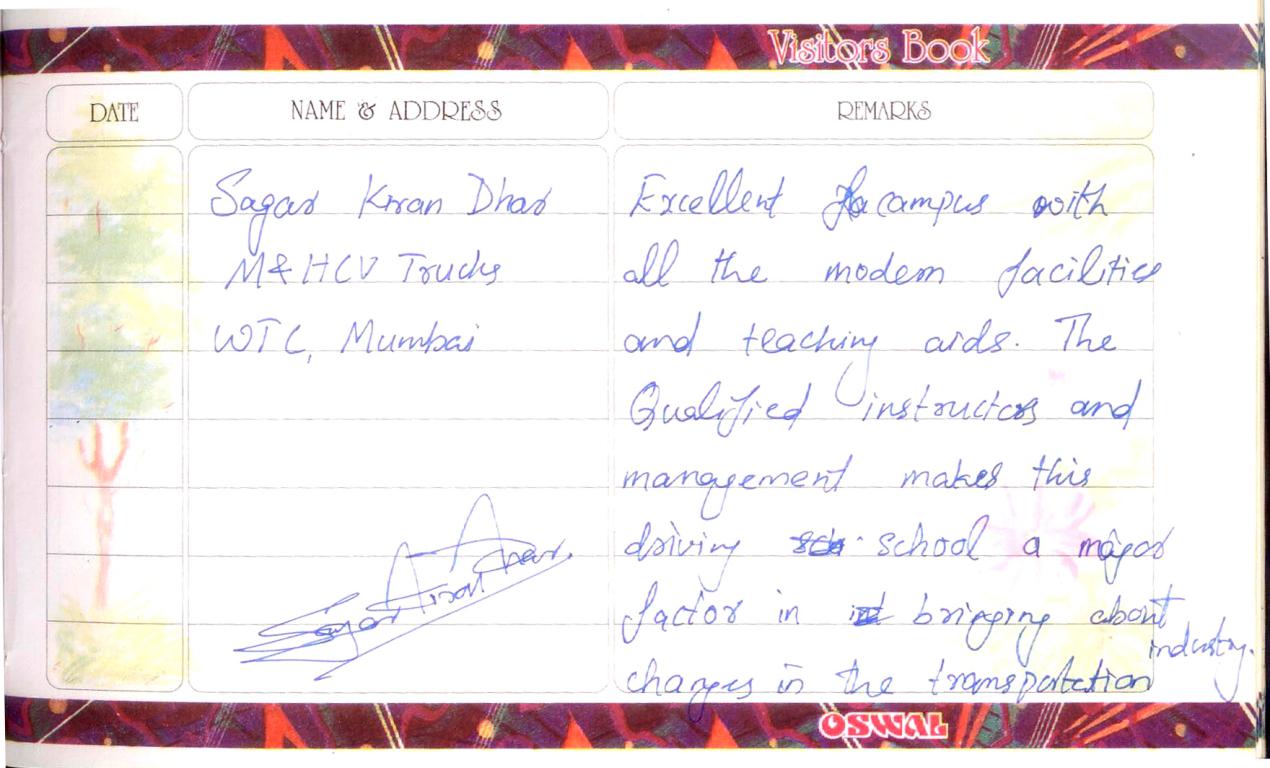 Visitors Book
DATE
NAME & ADDRESS
REMARKS
Sagar Kiran Dhar
M&HCV Trucks
WTC, Mumbai
Sagar Kiran Dhar.
Excellent campus with
all the modern facilities
and teaching aids. The
Qualified instructors and
management makes this
driving school a major
factor in bringing about
changes in the transportation
industry.
OSWAL